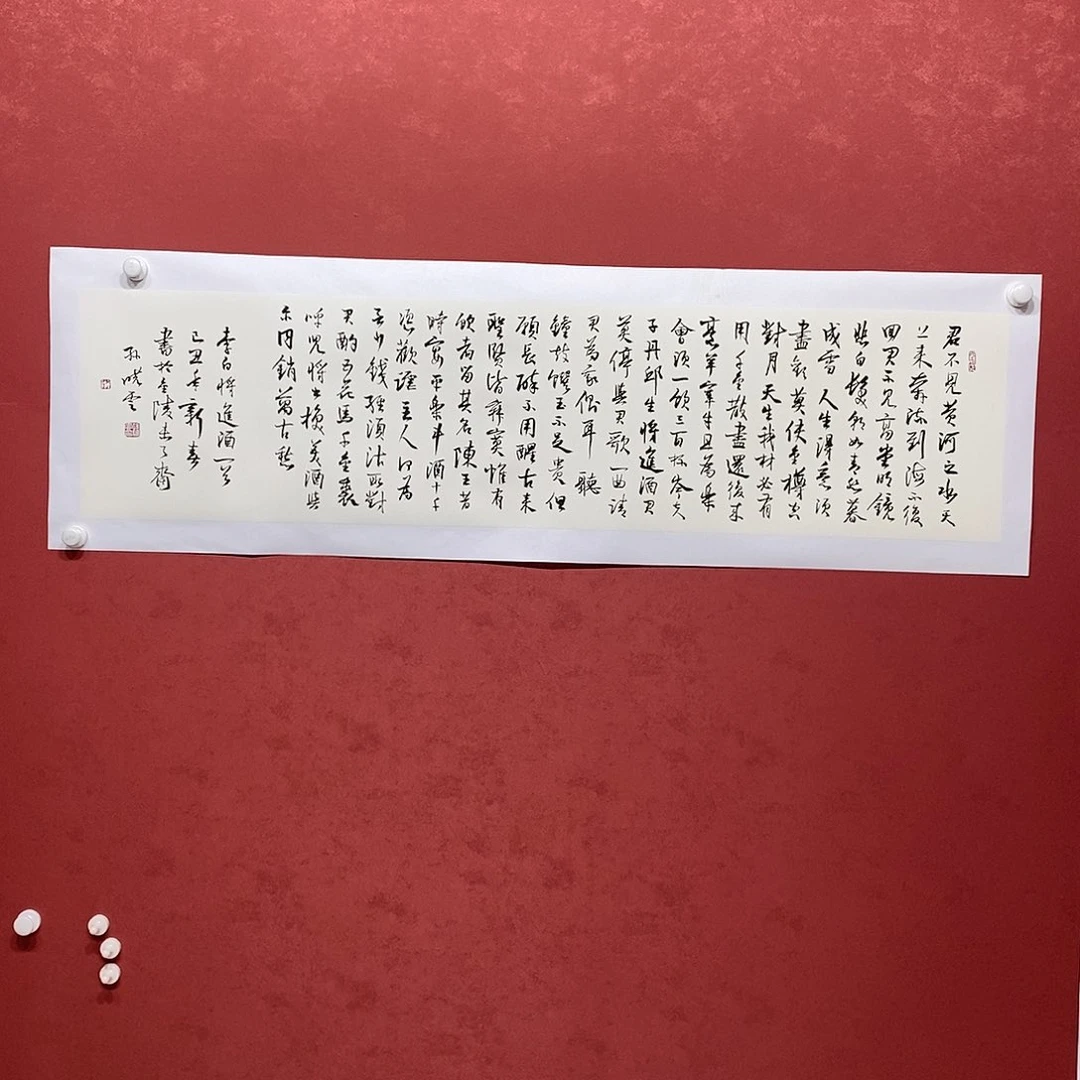 君不見黄河之水天
上来奔流到海不復
回君不見高堂明鏡
悲白髮朝如青絲暮
成雪人生得意須
盡歡莫使金樽空
對月天生我材必有
用千金散盡還復来
烹羊宰牛且為樂
會須一飲三百杯岑夫
子丹邱生將進酒君
莫停與君歌一曲請
君為我傾耳聽
鐘鼓饌玉不足貴但
願長醉不用醒古来
聖賢皆寂寞惟有
飲者留其名陳王昔
時宴平樂斗酒十千
恣歡謔主人何為
言少錢徑須沽取對
君酌五花馬千金裘
呼兒將出換美酒與
尔同銷萬古愁
李白將進酒一首
己丑年新春
書於金陵
孫曉雲